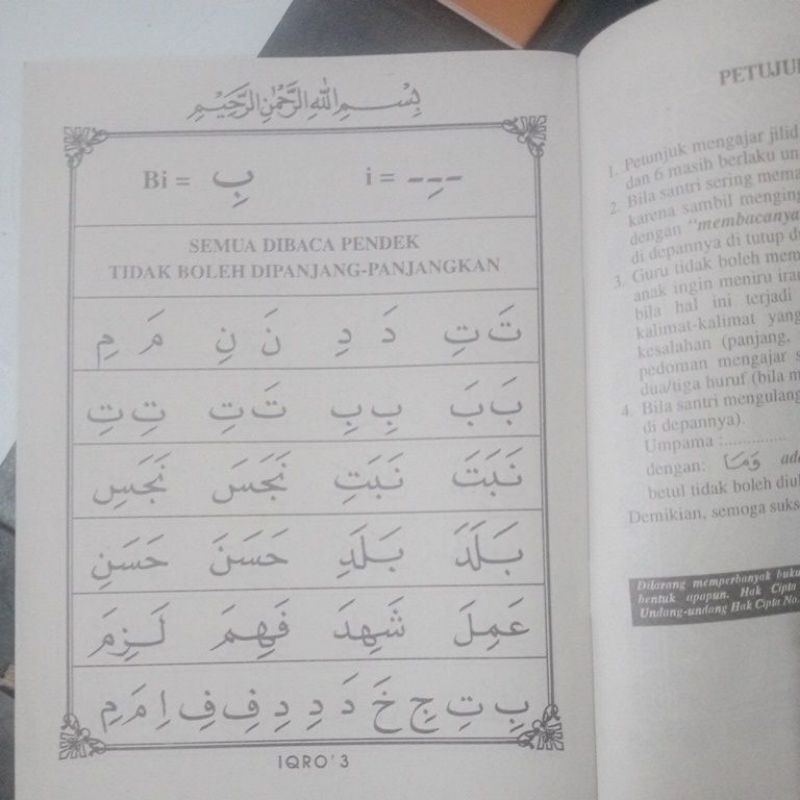 بِسْمِ اللهِ الرَّحْمٰنِ الرَّحِيْمِ
Bi = بِ i = ـِ
SEMUA DIBACA PENDEK
TIDAK BOLEH DIPANJANG-PANJANGKAN
تَ تِ دَ دِ نَ نِ مَ مِ
بَ بَ بِ بِ تَ تِ تِ تِ
نَبَتَ نَبَتِ نَجَسَ نَجَسِ
بَلَدَ بَلَدِ حَسَنَ حَسَنِ
عَمِلَ شَهِدَ فَهِمَ لَزِمَ
بِ تِ جِ خَ دَ دِ دِ فِ فِ اِ مَ مِ
IQRO' 3
1. Petunjuk mengajar jilid
dan 6 masih berlaku
2. Bila santri sering
karena sambil
dengan "membacanya
di depannya di tutup
3. Guru tidak boleh
anak ingin meniru
bila hal ini terjadi
kalimat-kalimat yang
kesalahan (panjang,
pedoman mengajar
dua/tiga huruf (bila
4. Bila santri mengulang
di depannya).
Umpama :.............
dengan: وَمَا
betul tidak boleh
Demikian, semoga
Dilarang memperbanyak buku
bentuk apapun. Hak Cipta
Undang-undang Hak Cipta No.